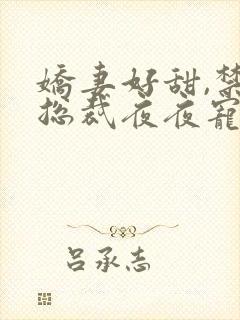 嬌妻好甜,禁
總裁夜夜寵
呂承志